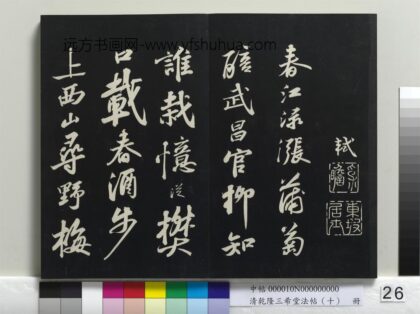 远方书画网-www.yfshuhua.com
軾
東坡居士
春江淥漲蒲萄
醅武昌官柳知
誰栽憶從樊
口載春酒步
上西山尋野梅
中帖 000010N000000000
清乾隆三希堂法帖（十） 冊
26